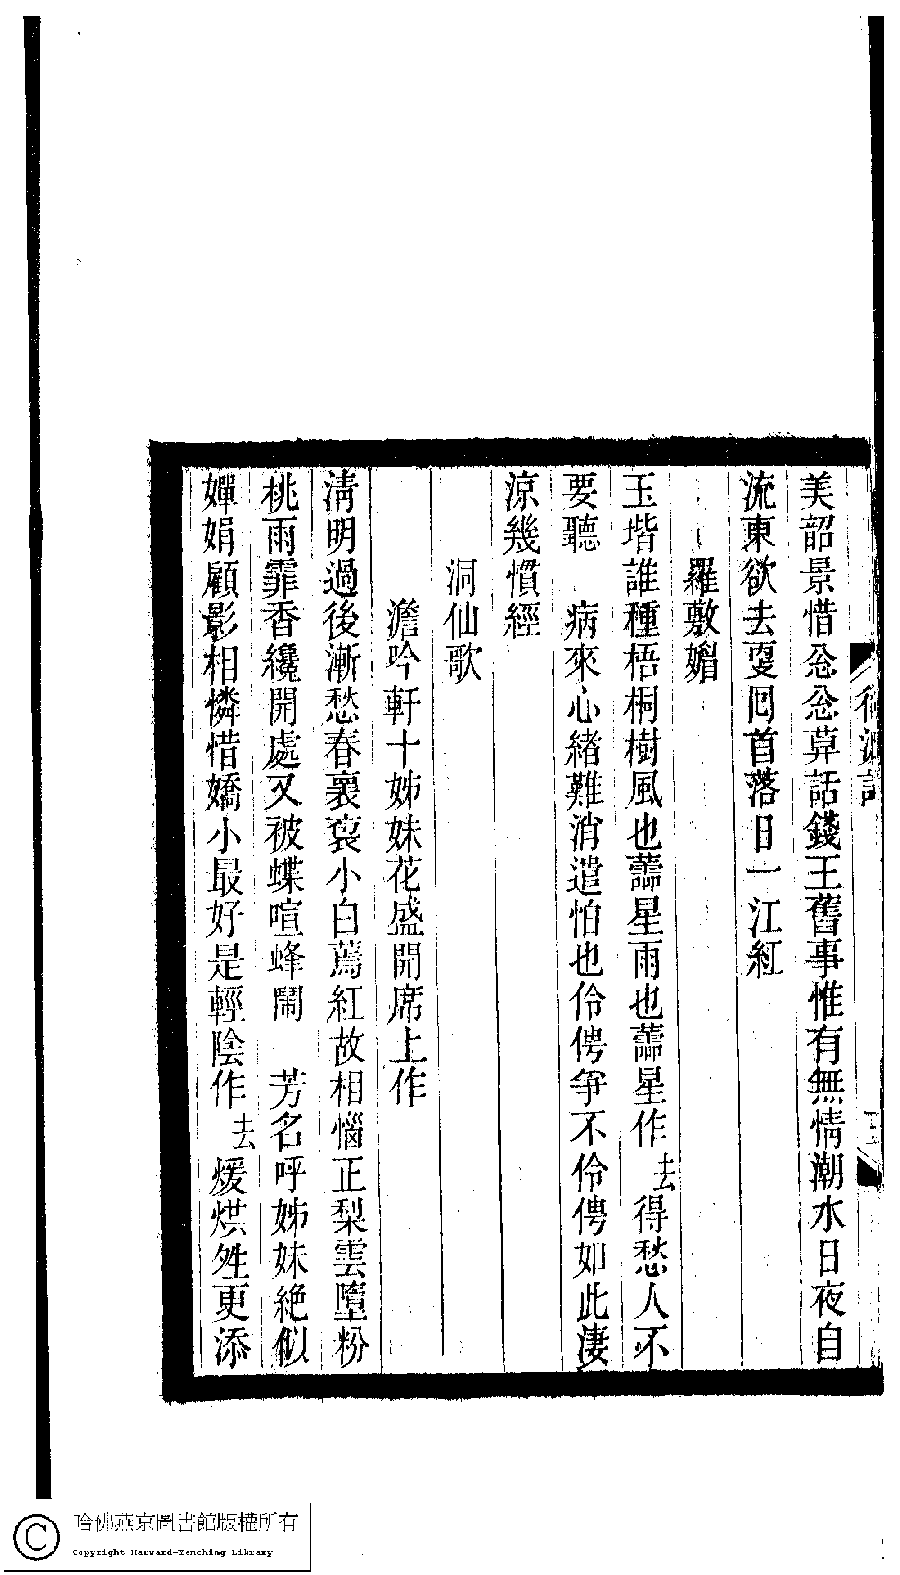 美韶景惜忩忩草話錢王舊事惟有無情潮水日夜自
流東欲去更囘首落日一江紅
羅敷媚
玉堦誰種梧桐樹風也蕭星雨也蕭星作去得愁人不
要聽　病來心緒難消遣怕也伶俜爭不伶俜如此淒
涼幾慣經
洞仙歌
澹吟軒十姊妹花盛開席上作
淸明過後漸愁春裏裛小白蔫紅故相惱正梨雲墮粉
桃雨霏香纔開處又被蝶喧蜂鬧　芳名呼姊妹絶似
嬋娟顧影相憐惜嬌小最好是輕陰作去煖烘甡更添
哈佛燕京圖書館版權所有
Copyright Harvard-Yenching Library